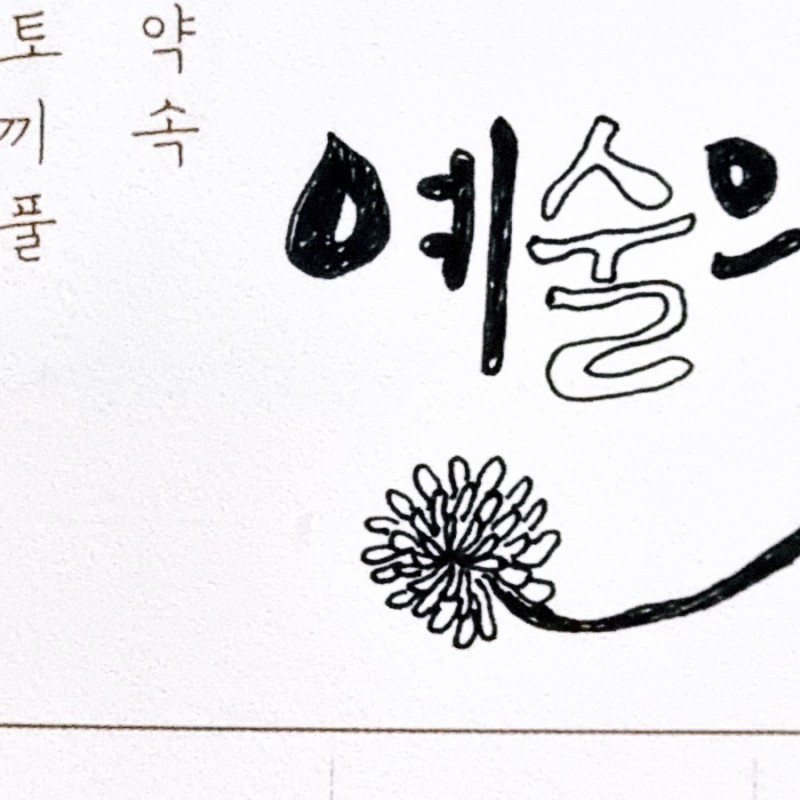 토끼풀
약속
예술